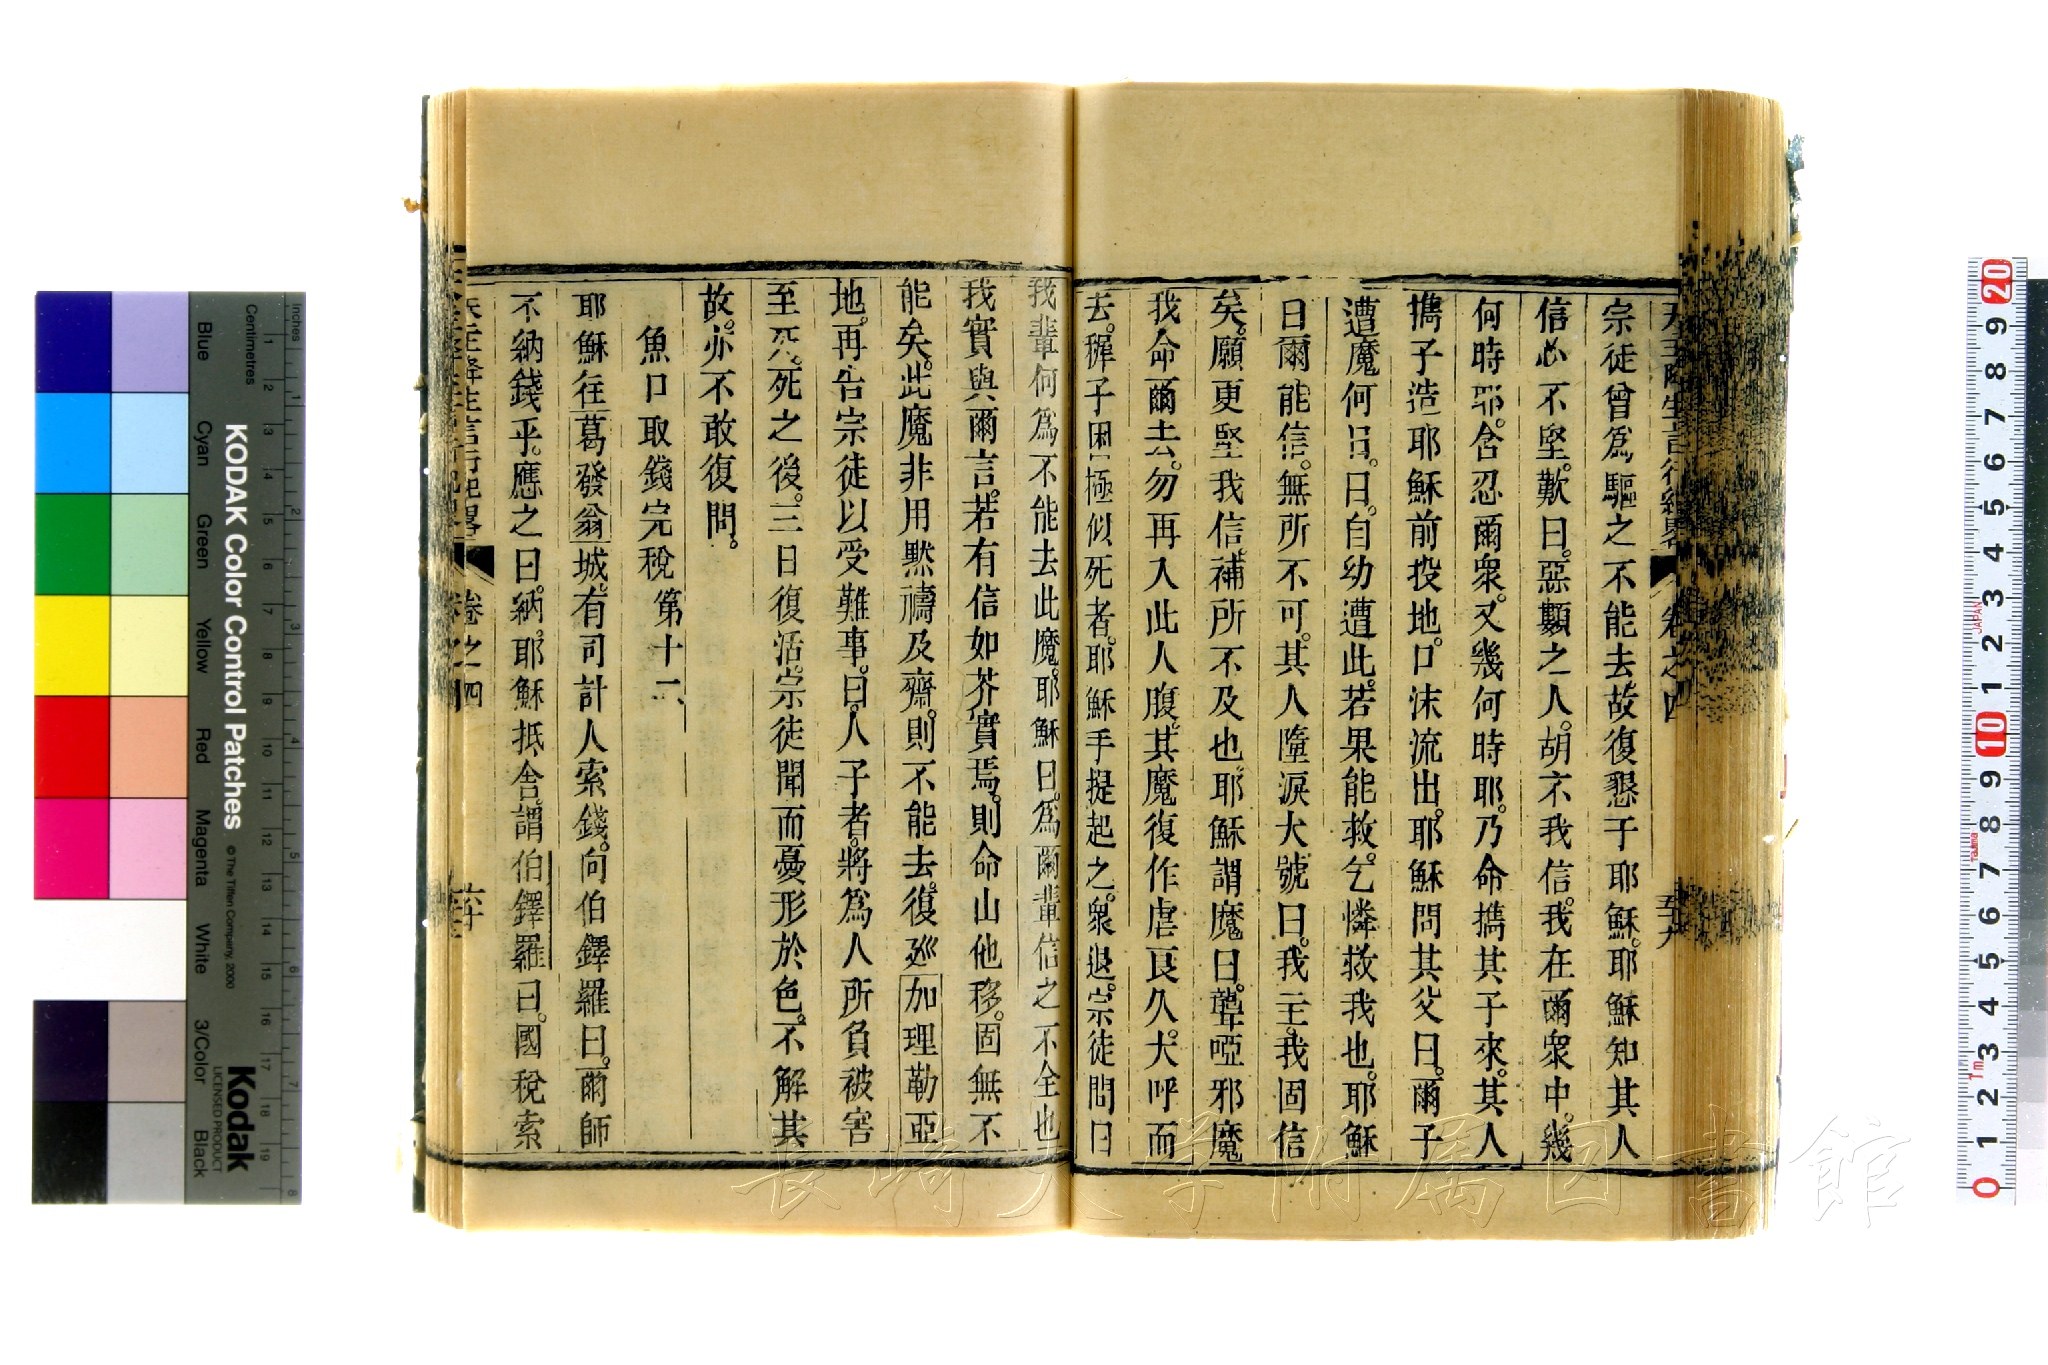 天主降生言行紀畧 卷之四 五十九
宗徒曾爲驅之不能去故復懇于耶穌。耶穌知其人
信必不堅。歎曰。惡類之人。胡不我信。我在爾衆中。幾
何時耶。含忍爾衆。又幾何時耶。乃命攜其子來。其人
攜子造耶穌前投地。口沫流出。耶穌問其父曰。爾子
遭魔何日。曰。自幼遭此。若果能救。乞憐救我也。耶穌
曰爾能信。無所不可。其人墮淚大號曰。我主。我固信
矣。願更堅我信。補所不及也。耶穌謂魔曰。聾啞邪魔
我命爾去。勿再入此人腹。其魔復作虐良久。大呼而
去。穉子困極似死者。耶穌手提起之。衆退。宗徒問曰
我輩何爲不能去此魔。耶穌曰。爲爾輩信之不全也
我實與爾言。若有信如芥實焉。則命山他移。固無不
能矣。此魔非用默禱及齋。則不能去。復廵加理勒亞
地。再告宗徒以受難事。曰。人子者。將爲人所負被害
至死。死之後。三日復活。宗徒聞而憂形於色。不解其
故。亦不敢復問。
魚口取錢完稅 第十二
耶穌往葛發翁城。有司計人索錢。向伯鐸羅曰。爾師
不納錢乎。應之曰。納。耶穌抵舍。謂伯鐸羅曰。國稅索
天主降生言行紀畧 卷之四 六十
KODAK Color Control Patches
© The Tiffen Company, 2000
Kodak
LICENSED PRODUCT
Inches
Centimetres
Blue
Cyan
Green
Yellow
Red
Magenta
White
3/Color
Black
長崎大学附属図書館
JAPAN
Tajima